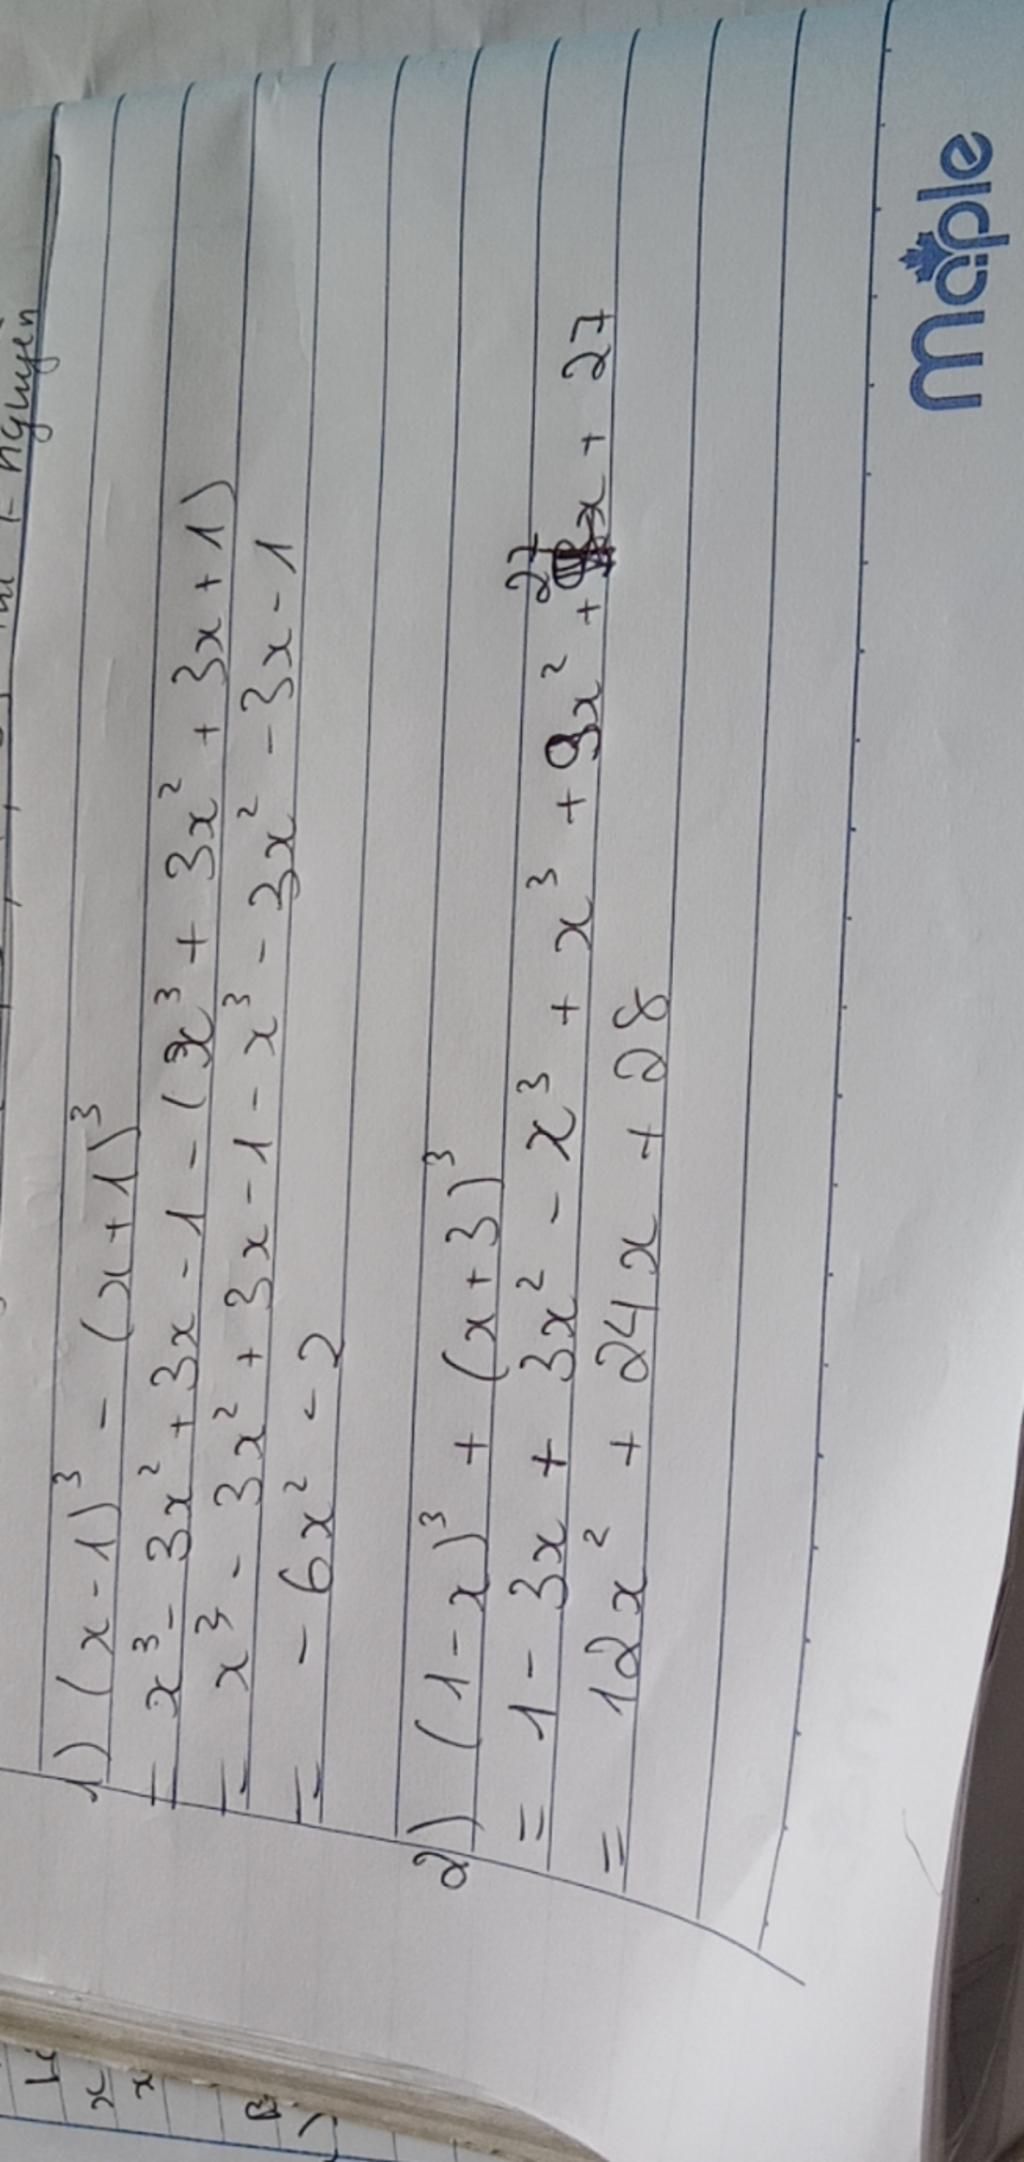 Nguyên
1) (x-1)³ - (x+1)³
= x³ - 3x² + 3x - 1 - (x³ + 3x² + 3x + 1)
= x³ - 3x² + 3x - 1 - x³ - 3x² - 3x - 1
= - 6x² - 2
2) (1-x)³ + (x+3)³
= 1 - 3x + 3x² - x³ + x³ + 9x² + 27x + 27
= 12x² + 24x + 28
maple